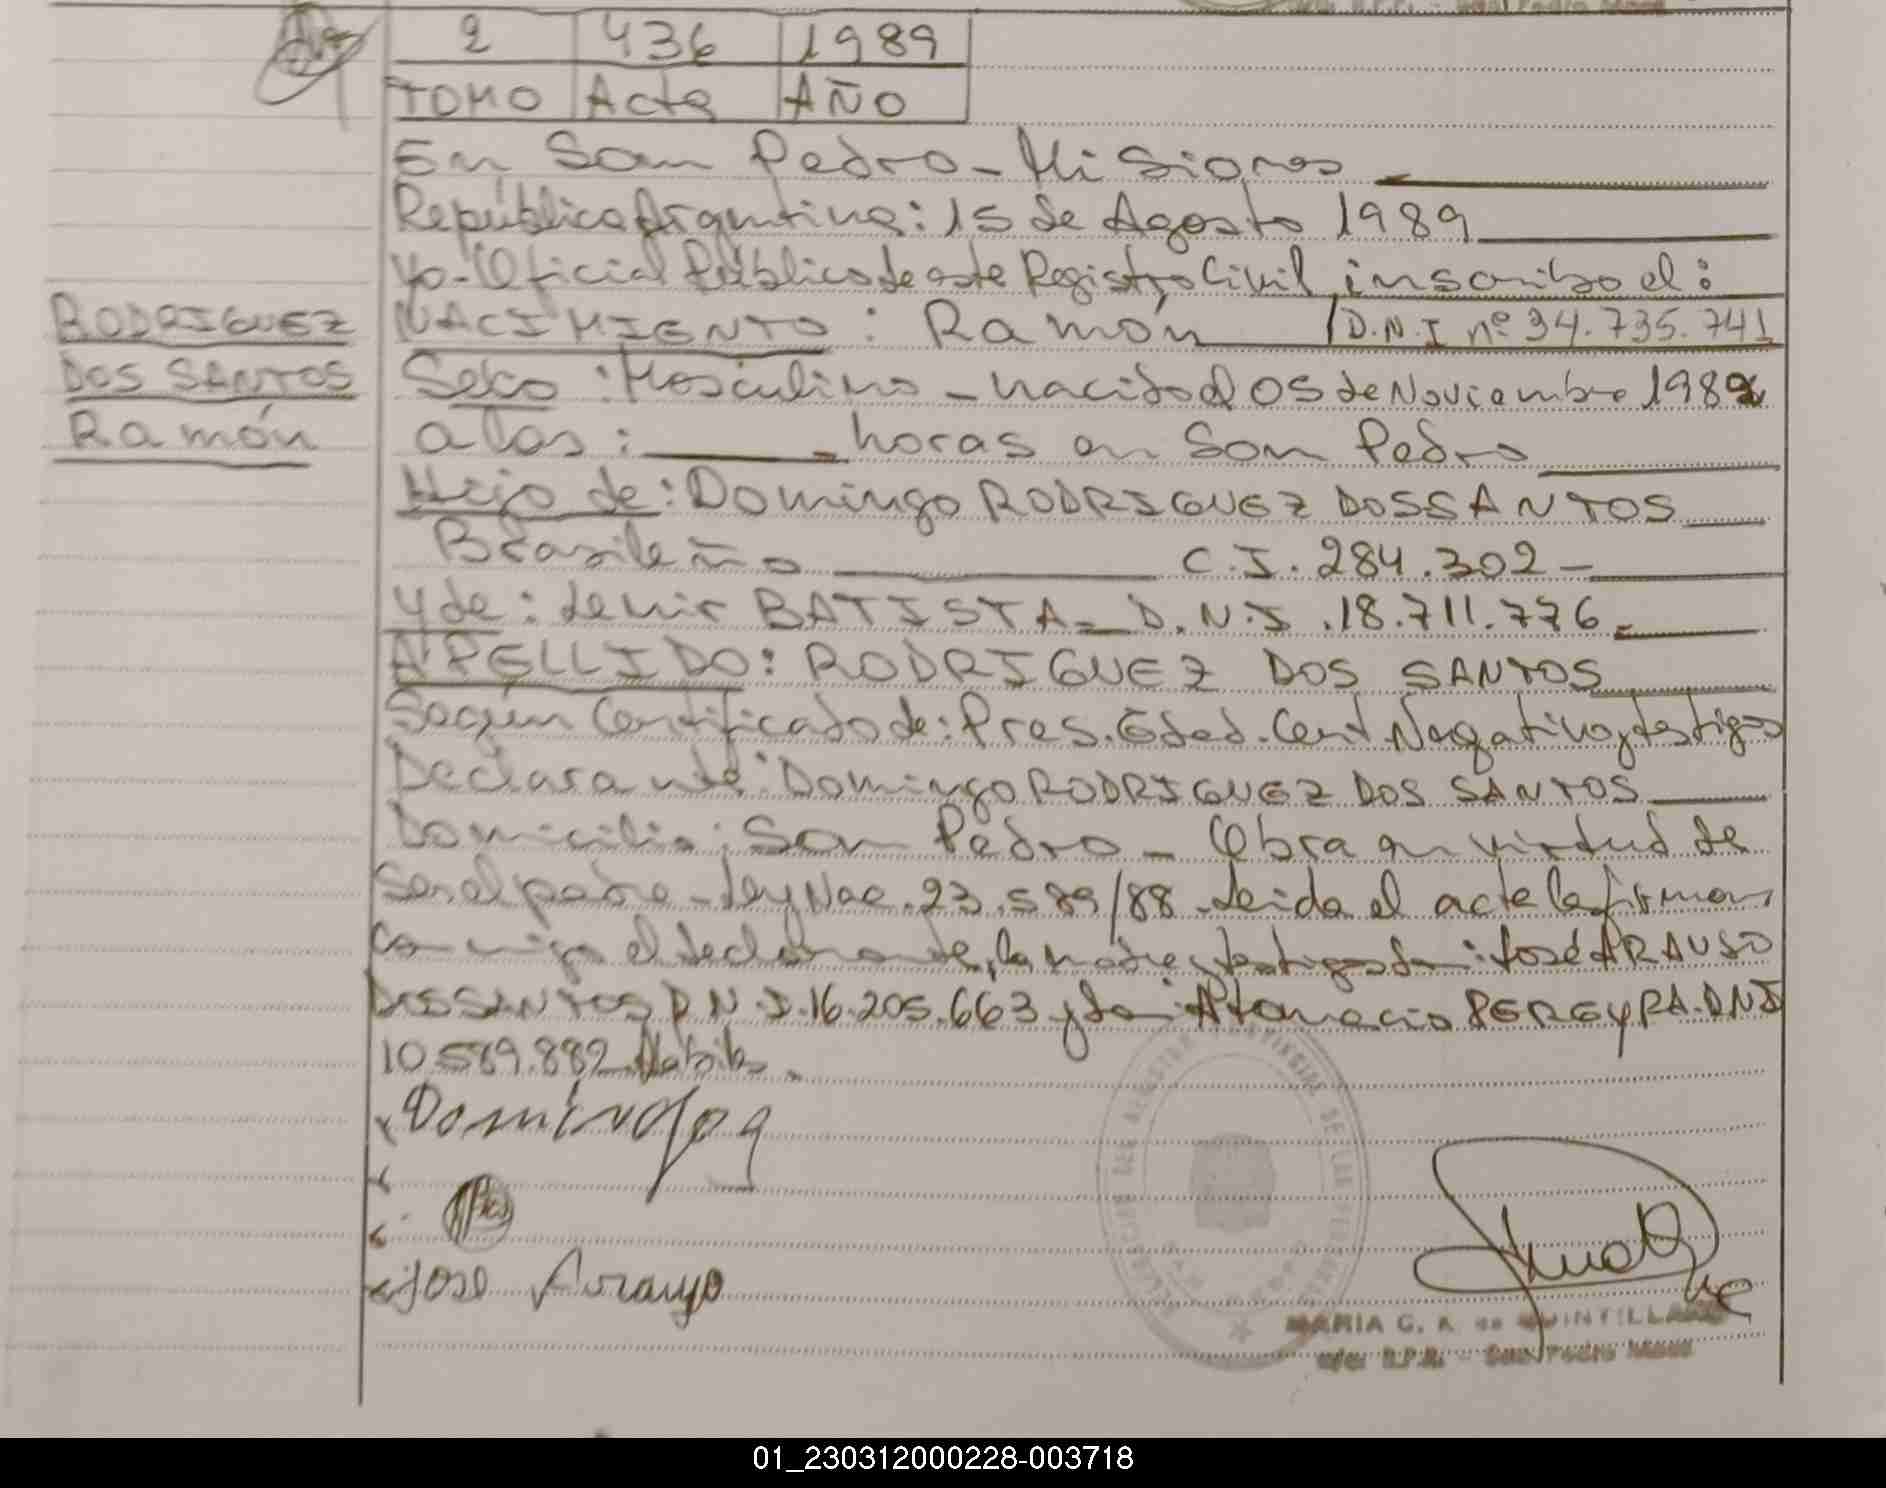 2 436 1989
TOMO Acta AÑO
En San Pedro - Misiones
República Argentina: 15 de Agosto 1989
Yo - Oficial Público de este Registro Civil inscribo el:
NACIMIENTO: Ramón D.N.I nº 34.735.741
RODRIGUEZ
DOS SANTOS
Ramón
Sexo: Masculino - nacido el 05 de Noviembre 198
a las: horas en San Pedro
Hijo de: Domingo RODRIGUEZ DOS SANTOS
Brasileño C.I. 284.302 -
y de: Lenir BATISTA - D.N.I. 18.711.776 -
APELLIDO: RODRIGUEZ DOS SANTOS
Según Certificado de: Pres. Edad. Cert. Negativo y testigos
Declarante: Domingo RODRIGUEZ DOS SANTOS
Domicilio: San Pedro - Obra en virtud de
ser el padre - Ley Nac. 23.589/88 - Leida el acta la firman
conmigo el declarante, la madre y testigos don: José ARAUJO
DOS SANTOS D.N.I. 16.205.663 y don: Atanacio PEREYRA. DNI
10.589.882. Habiles.
Domingo
Jose Araujo
MARIA G. K. de QUINTILLAN
San Pedro Mnes
01_230312000228-003718